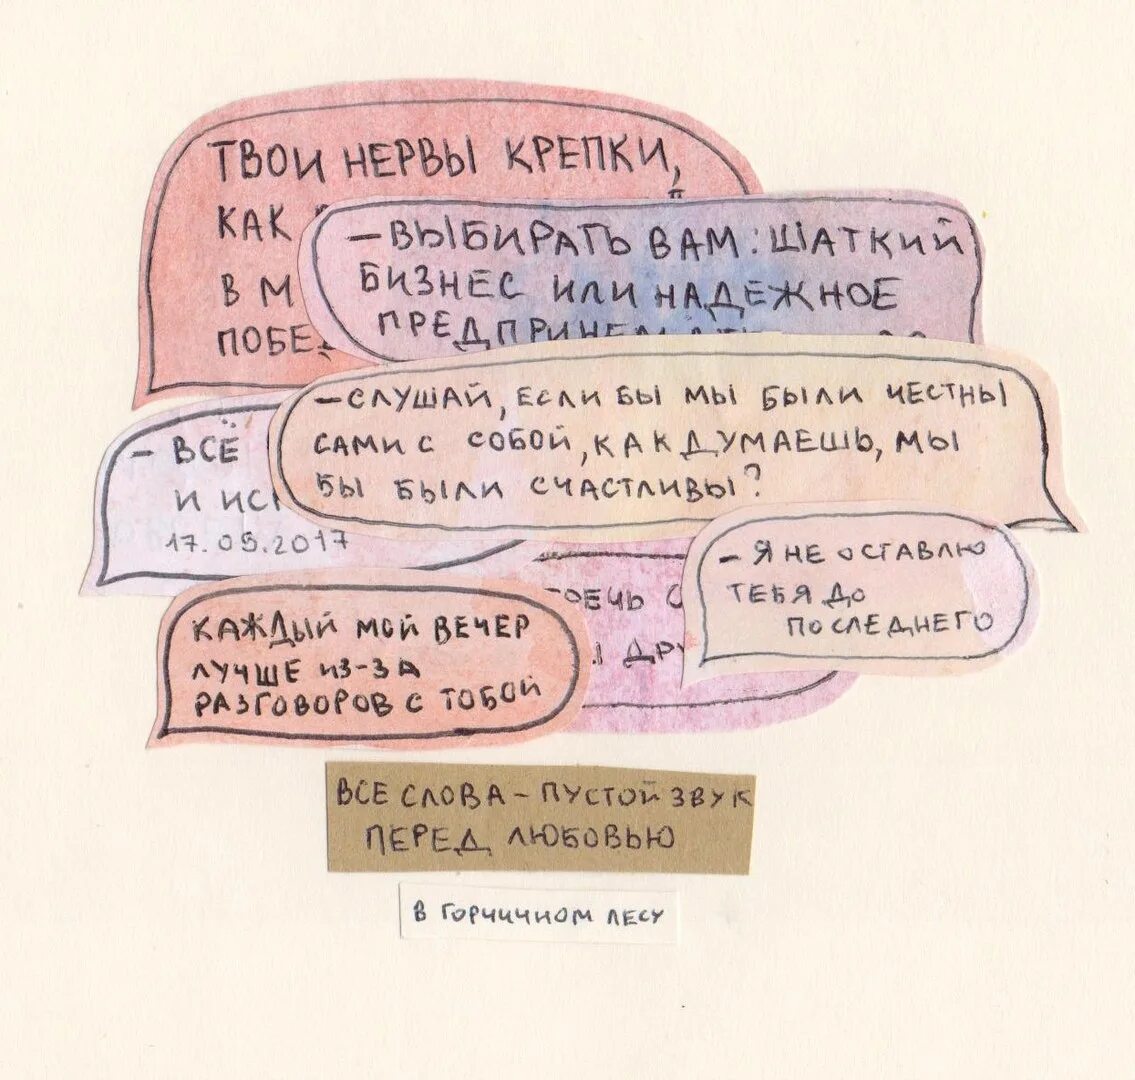 ТВОИ НЕРВЫ КРЕПКИ,
КАК
В М
ПОБЕД
– ВЫБИРАТЬ ВАМ: ШАТКИЙ
БИЗНЕС ИЛИ НАДЕЖНОЕ
– СЛУШАЙ, ЕСЛИ БЫ МЫ БЫЛИ ЧЕСТНЫ
САМИ С СОБОЙ, КАК ДУМАЕШЬ, МЫ
БЫ БЫЛИ СЧАСТЛИВЫ?
– ВСЁ
И ИС
17.05.2017
– Я НЕ ОСТАВЛЮ
ТЕБЯ ДО
ПОСЛЕДНЕГО
ДРУ
КАЖДЫЙ МОЙ ВЕЧЕР
ЛУЧШЕ ИЗ-ЗА
РАЗГОВОРОВ С ТОБОЙ
ВСЕ СЛОВА – ПУСТОЙ ЗВУК
ПЕРЕД ЛЮБОВЬЮ
В ГОРЧИЧНОМ ЛЕСУ